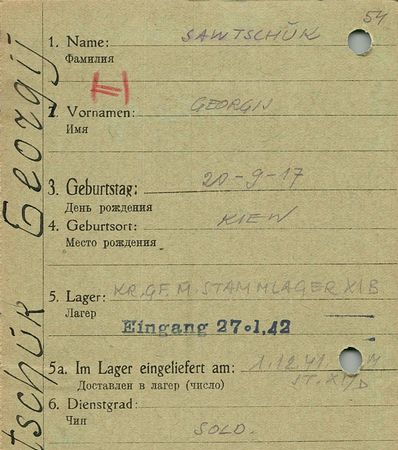 54
1. Name: SAWTSCHUK
Фамилия
2. Vornamen: GEORGIJ
Имя
3. Geburtstag: 20-9-17
День рождения
4. Geburtsort: KIEW
Место рождения
5. Lager: KR.GF.M.STAMMLAGER XI B
Лагер
Eingang 27.1.42
5a. Im Lager eingeliefert am: 1.12.41
Доставлен в лагер (число)
6. Dienstgrad:
Чин
SOLD.
tschük Georgij